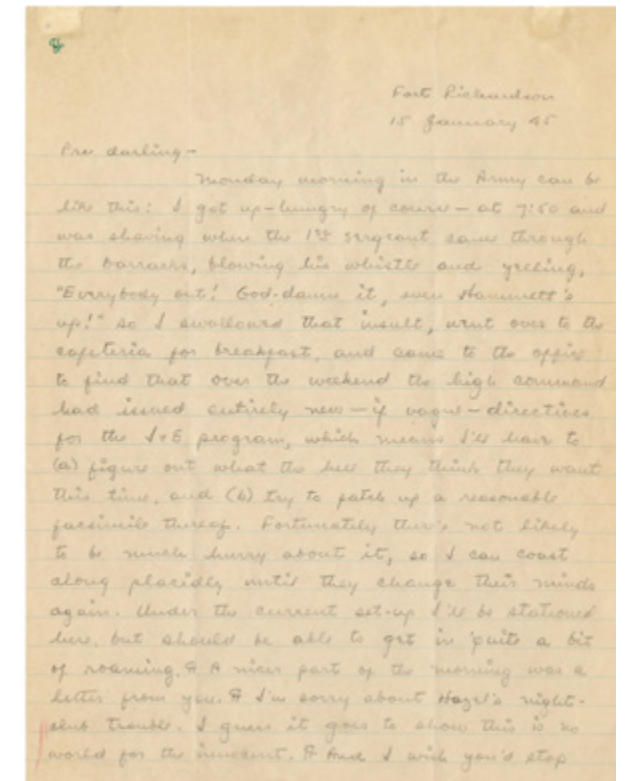 Fort Richardson
15 January 45
Pru darling—
Monday morning in the Army can be
like this: I got up—hungry of course— at 7:50 and
was shaving when the 1st sergeant came through
the barracks, blowing his whistle and yelling,
"Everybody out! God-damn it, even Hammett's
up!" so I swallowed that insult, went over to the
cafeteria for breakfast, and came to the office
to find that over the weekend the high command
had issued entirely new—if vague—directives
for the I+E program, which means I'll have to
(a) figure out what the hell they think they want
this time, and (b) try to patch up a reasonable
facsimile thereof. Fortunately there's not likely
to be much hurry about it, so I can coast
along placidly until they change their minds
again. Under the current set-up I'll be stationed
here, but should be able to get in quite a bit
of roaming. ¶ A nicer part of the morning was a
letter from you. ¶ I'm sorry about Hazel's night-
club trouble. I guess it goes to show this is no
world for the innocent. ¶ And I wish you'd stop